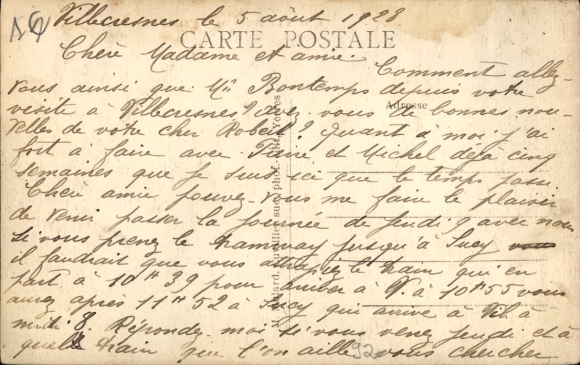 Villecresnes le 5 août 1928
CARTE POSTALE
Chère Madame et amie.
Comment allez-
vous ainsi que Mr Bontemps depuis votre
visite à Villecresnes? Avez-vous de bonnes nou-
Adresse
velles de votre cher Robert? Quant à moi j'ai
fort à faire avec Pierre et Michel déjà cinq
semaines que je suis ici que le temps passe
Chère amie pouvez-vous me faire le plaisir
de venir passer la journée de Jeudi 9 avec nous
si vous prenez le tramway jusqu'à Sucy
il faudrait que vous attrapiez le train qui en
part à 10 h 39 pour arriver à V. à 10 h 55 vous
aurez après 11 h 52 à Sucy qui arrive à Vil. à
midi 8. Répondez-moi si vous venez jeudi et à
quel train que l'on aille vous chercher
92